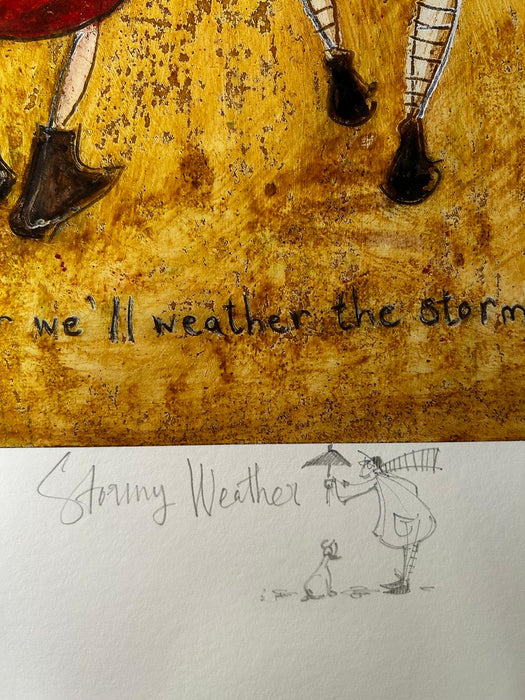 we'll weather the storm
Stormy Weather